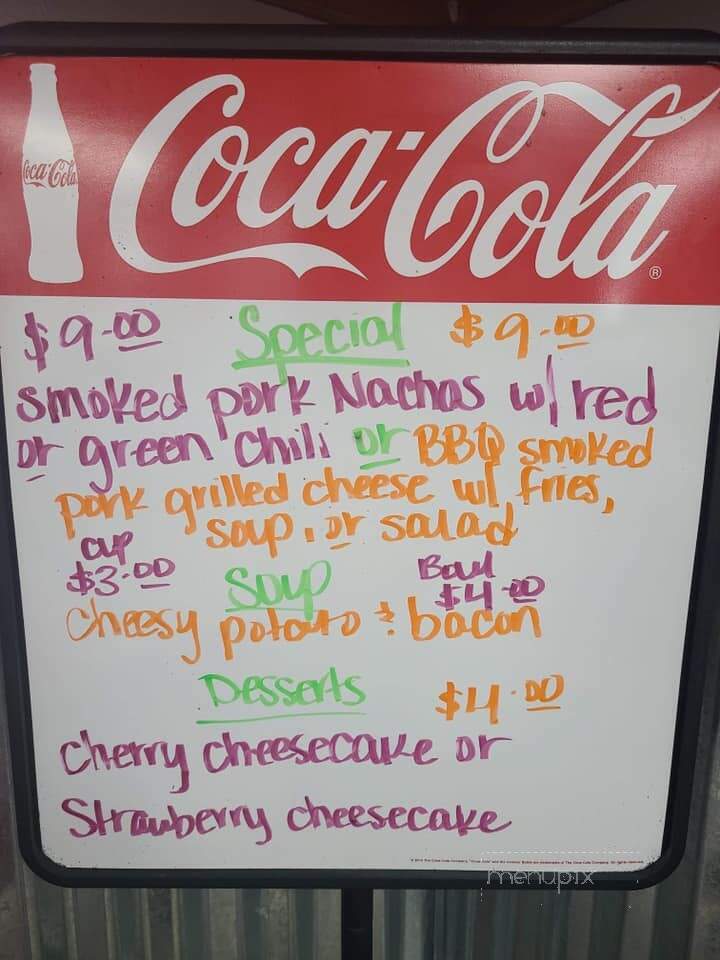 Coca-Cola
Coca-Cola®
$9.00 Special $9.00
smoked pork Nachos w/ red
or green Chili or BBQ smoked
pork grilled cheese w/ fries,
soup, or salad
cup
$3.00 Soup Bowl $4.00
Cheesy potato & bacon
Desserts $4.00
Cherry cheesecake or
Strawberry cheesecake
menupix